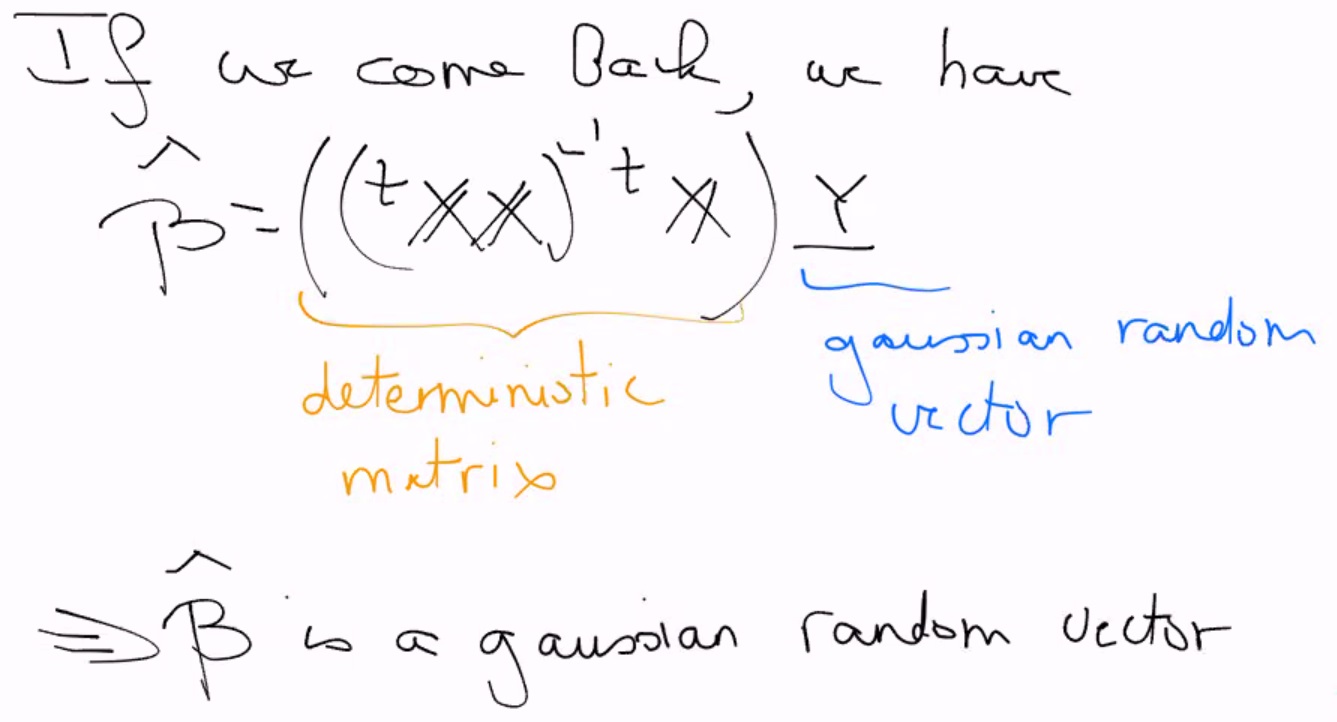 If we come Back, we have
β̂ = ((ᵗ𝕏𝕏)⁻¹ ᵗ𝕏) Y
deterministic
matrix
gaussian random
vector
⇒ β̂ is a gaussian random vector